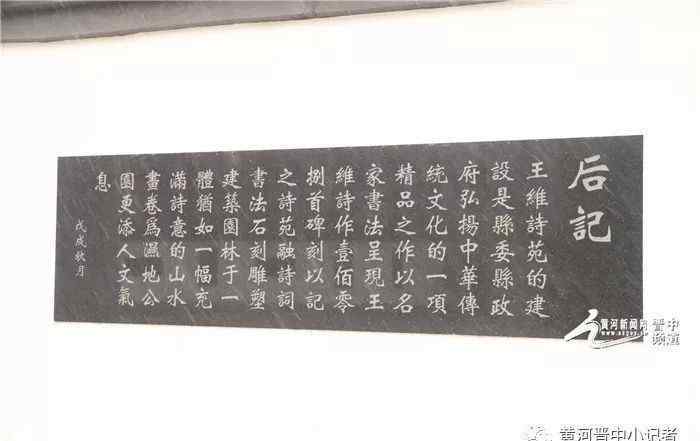 后記
王維詩苑的建
設是縣委縣政
府弘揚中華傳
統文化的一項
精品之作以名
家書法呈現王
維詩作壹佰零
捌首碑刻以記
之詩苑融詩詞
書法石刻雕塑
建築園林于一
體猶如一幅充
滿詩意的山水
畫卷為濕地公
園更添人文氣
息
戊戌秋月
黄河新闻网 晋中频道
黄河晋中小记者